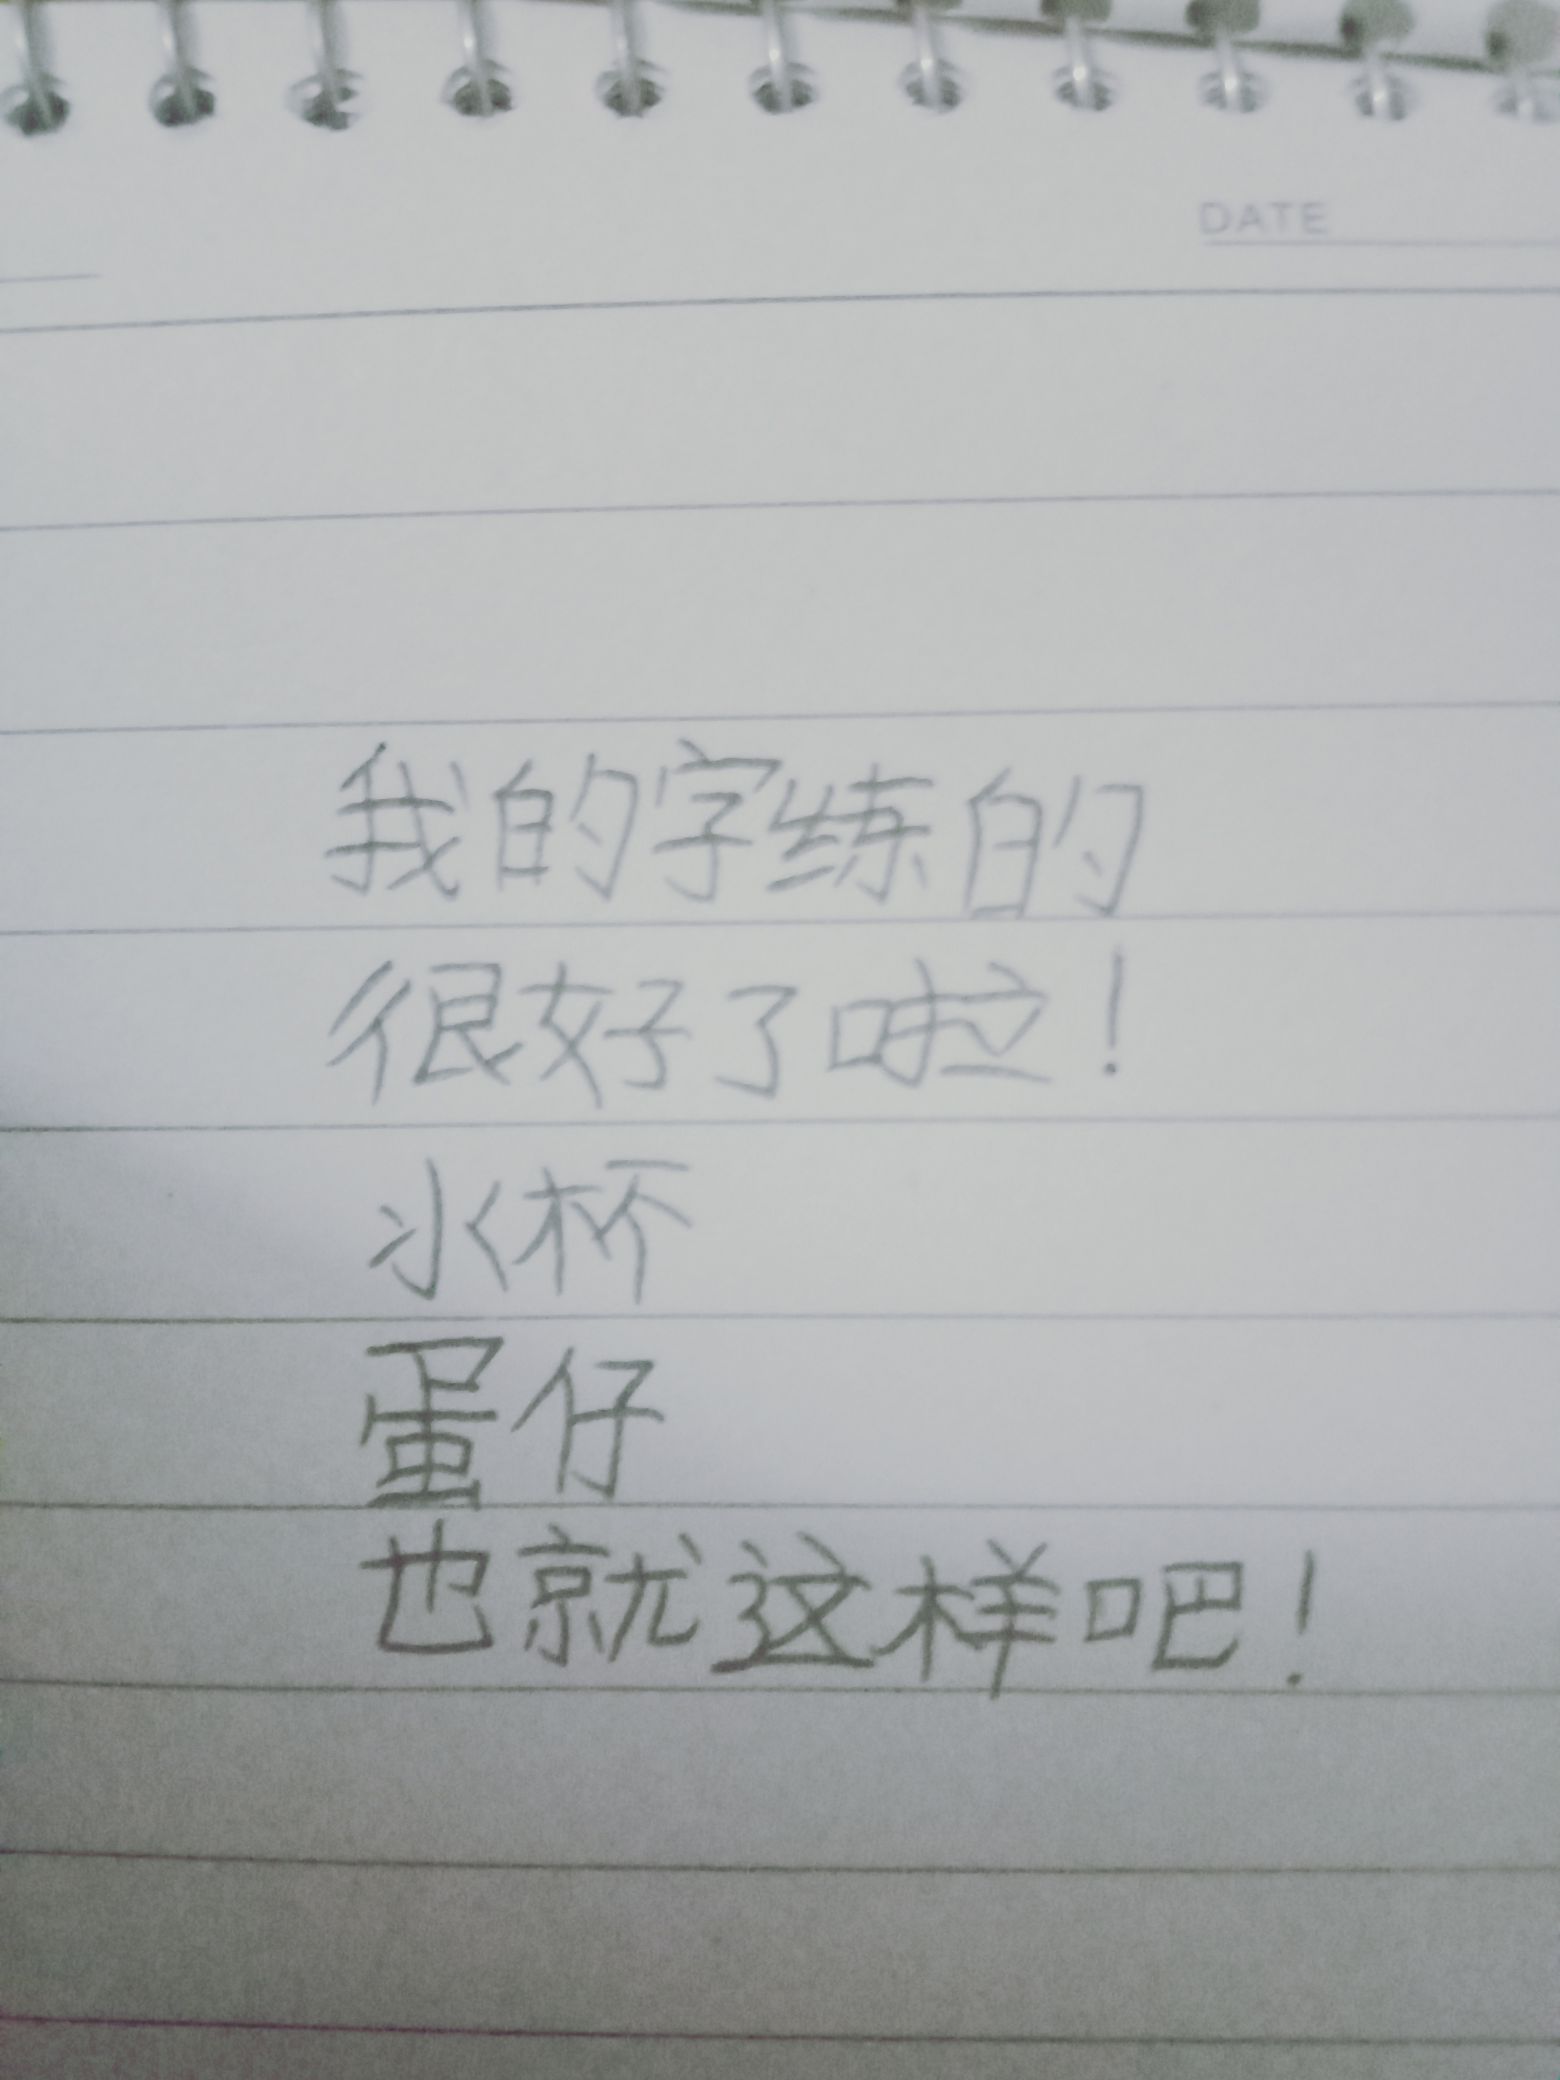 DATE
我的字练的
很好了啦！
水杯
蛋仔
也就这样吧！